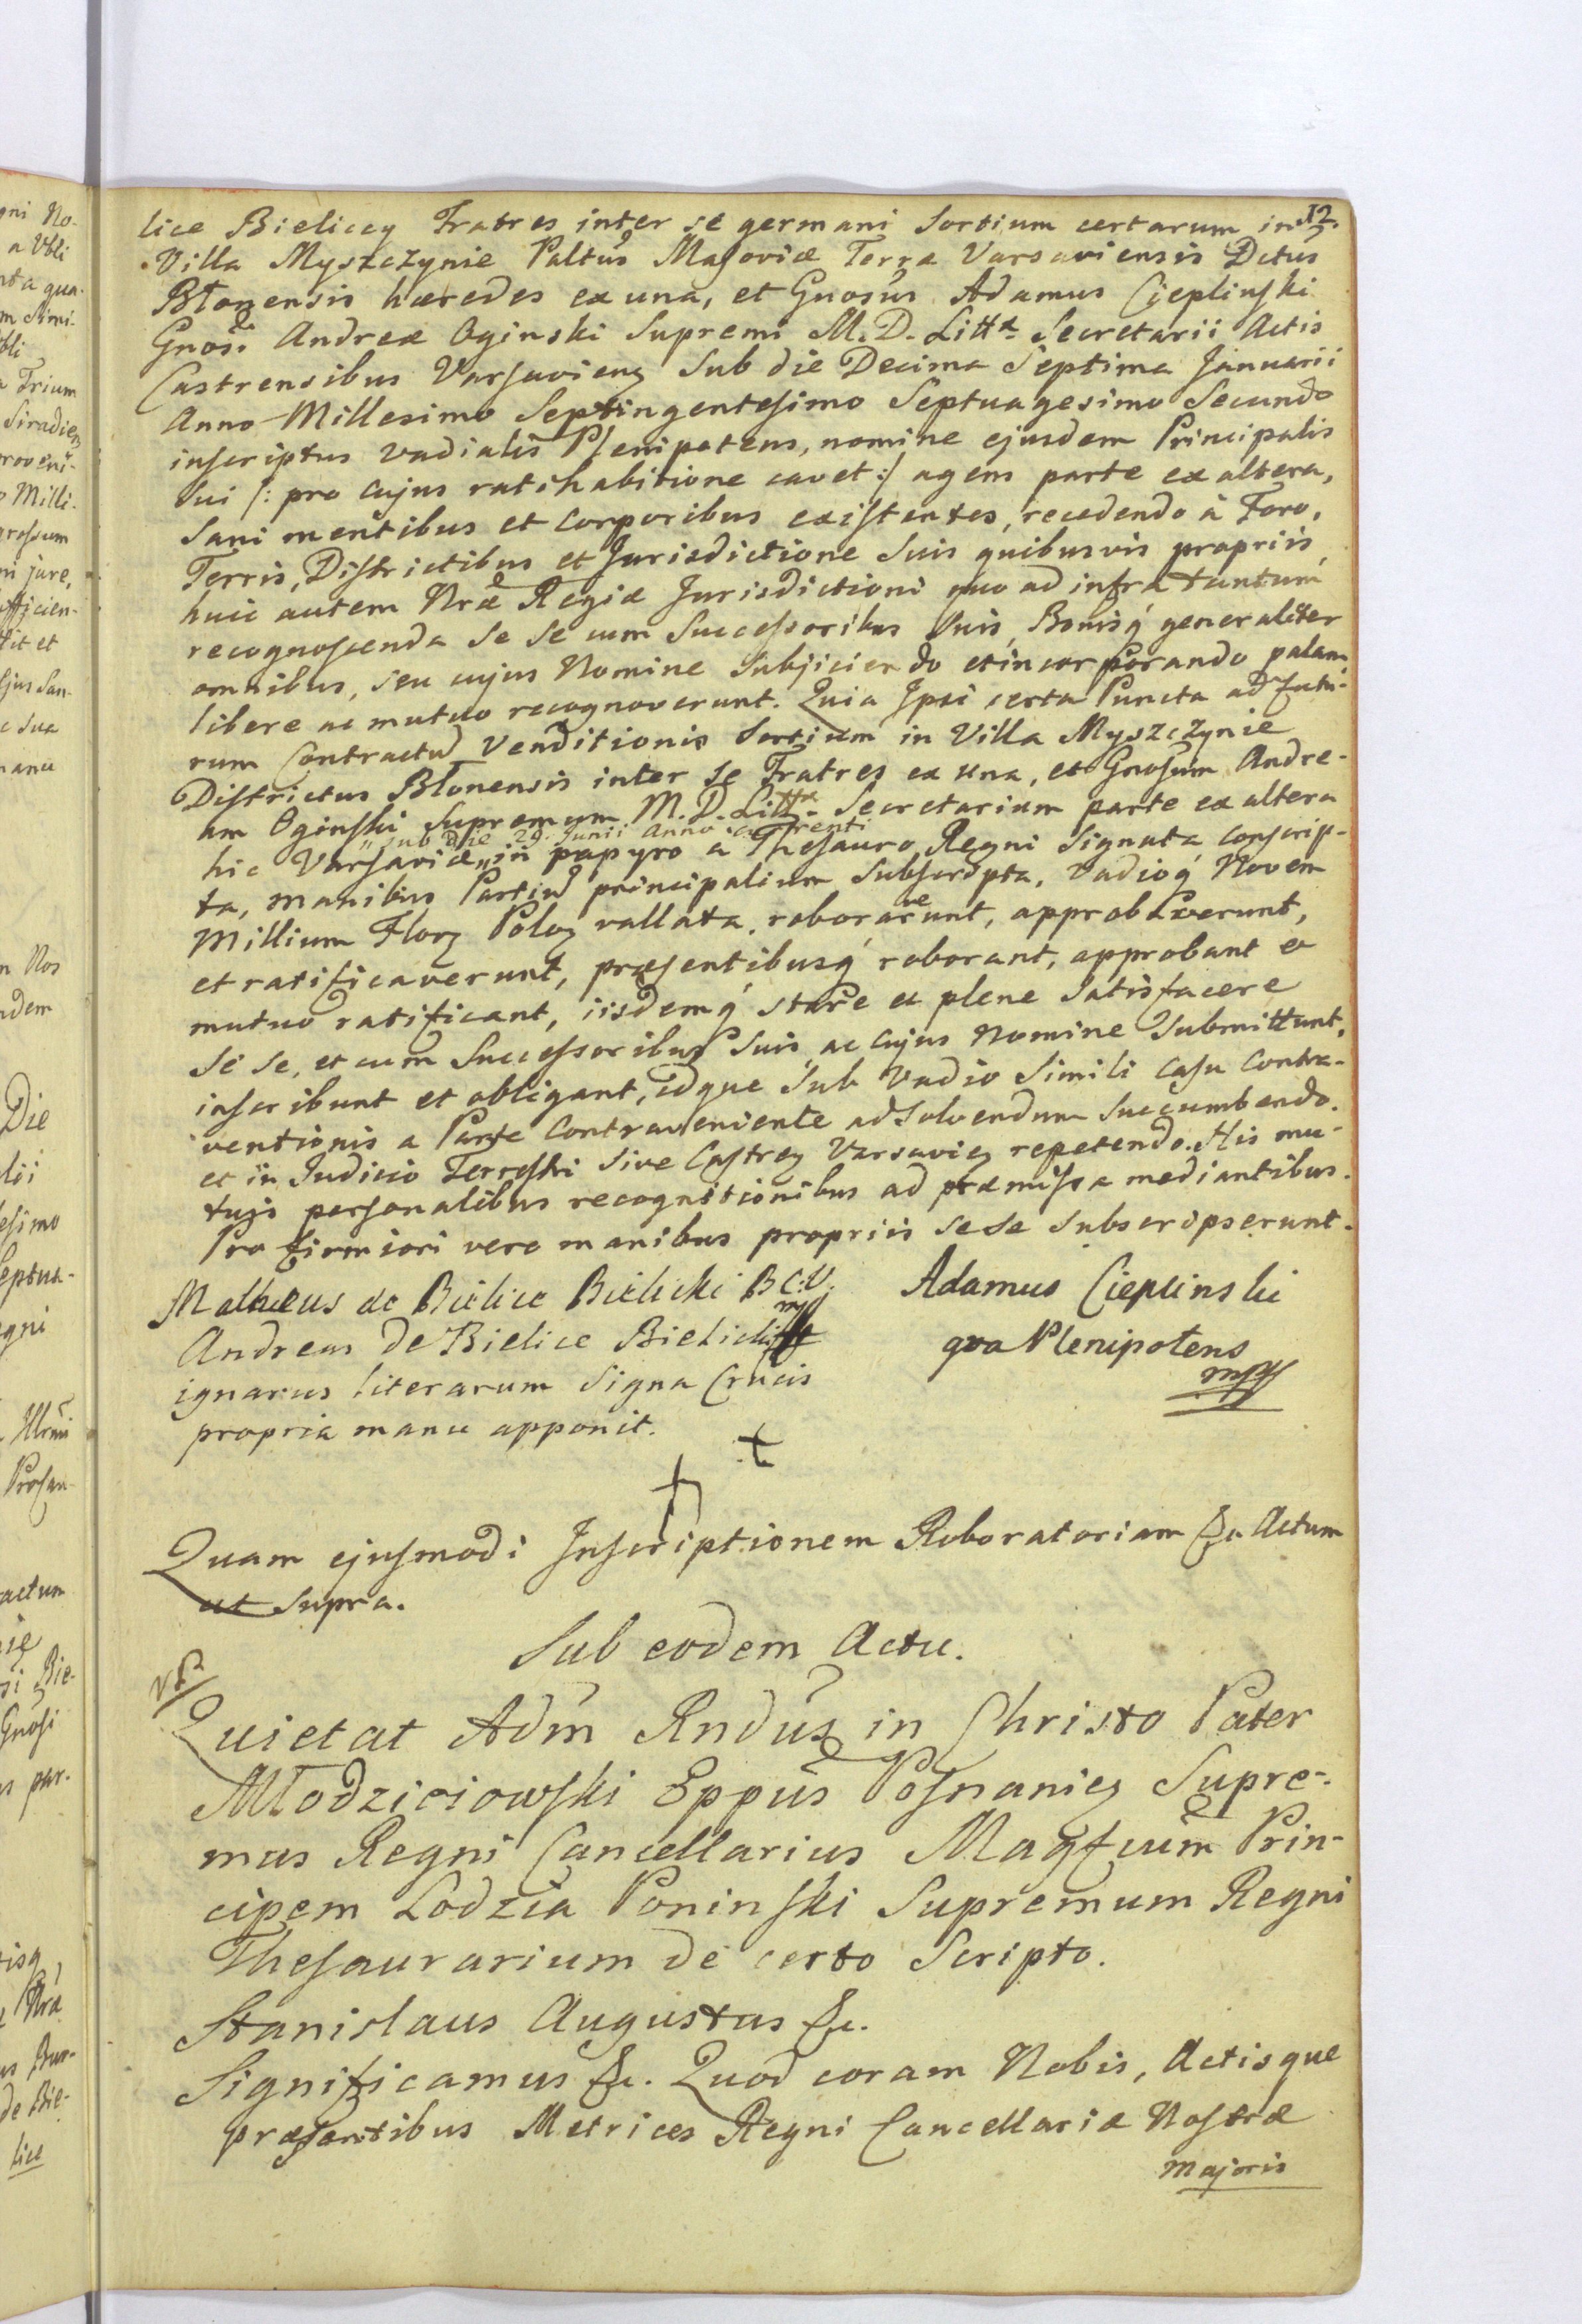 12.
lice Bieliccy Fratres inter se germani Sortium certarum in
Villa Myszczynie Paltūs Masoviæ Terræ Varsaviensis Dctus
Błonensis hæredes ex una, et Gnosūs Adamus Cieplinski
Gnosi Andreæ Oginski Supremi M. D. Littæ Secretarii Actis
Castrensibus Varsavien Sub die Decima Septima Januarii
Anno Millesimo Septingentesimo Septuagesimo Secundo
inscriptus vadialis Plenipotens, nomine ejusdem Principalis
Sui /: pro cujus ratihabitione cavet :/ agens parte ex altera,
Sani mentibus et Corporibus existentes, recedendo à Foro,
Terris, Districtibus et Jurisdictione Suis quibusvis propriis,
huic autem Nræ Regiæ Jurisdictioni quo ad infra tantum
recognoscenda Se Se cum Successoribus Suis, Bonisq generaliter
omnibus, seu cujus Nomine Subjiciendo et incorporando palam
libere ac mutuo recognoverunt. Quia Ipsi certa Puncta ad futu-
rum Contractus Venditionis Sortium in Villa Myszczynie
Districtus Błonensis inter Se Fratres ex una, et Gnosum Andre-
am Oginski Supremum M. D. Littæ Secretarium parte ex altera
„Sub die 29. Junii Anno currenti
hic Varsaviæ „in papyro a Thesauro Regni Signata conscrip-
ta, manibus Partium principalium Subscripta, Vadioq Novem
Millium Flor Polo vallata, roborarunt, approbaverunt,
ve
et ratificaverunt, præsentibusq roborant, approbant et
mutuo ratificant, iisdemq stare et plene Satisfacere
Se Se, et cum Successoribus Suis, ac cujus Nomine Submittunt,
inscribunt et obligant, idque Sub Vadio Simili Casu Contra-
ventionis a Parte Contraveniente adSolvendum Succumbendo.
et in Judicio Terrestri Sive Castren Varsavien repetendo. His mu-
tuis personalibus recognitionibus ad præmissa mediantibus.
Pro firmiori vero manibus propriis Se Se Subscripserunt.
Matheus de Bielice Bielicki B C: V.
mp
Andreas de Bielice Bielicki
ignarus literarum Signa Crucis
propria manu apponit.
Adamus Cieplinski
qva Plenipotens
mp
Quam ejusmodi Inscriptionem Roboratoriam &c. Actum
ut Supra.
Sub eodem Actu.
Quietat Adm̄ Rndūs in Christo Pater
Młodzieiowski Eppūs Posnanien Supre-
mus Regni Cancellarius Magfcum̄ Prin-
cipem Lodzia Poninski Supremum Regni
Thesaurarium de certo Scripto.
Stanislaus Augustus &c.
Significamus &c. Quod coram Nobis, Actisque
præsentibus Metrices Regni Cancellariæ Nostræ
Majoris